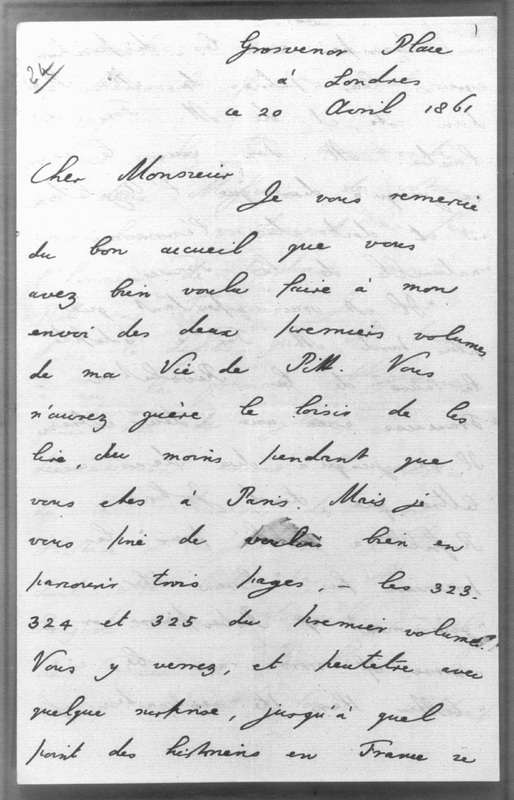 24
1
Grosvenor Place
à Londres
ce 20 Avril 1861
Cher Monsieur
Je vous remercie
du bon accueil que vous
avez bien voulu faire à mon
envoi des deux premiers volumes
de ma Vie de Pitt. Vous
n'aurez guère le loisir de les
lire, du moins pendant que
vous etes à Paris. Mais je
vous prie de vouloir bien en
parcourir trois pages, – les 323.
324 et 325 du premier volume.
Vous y verrez, et peutetre avec
quelque surprise, jusqu'à quel
point des historiens en France se